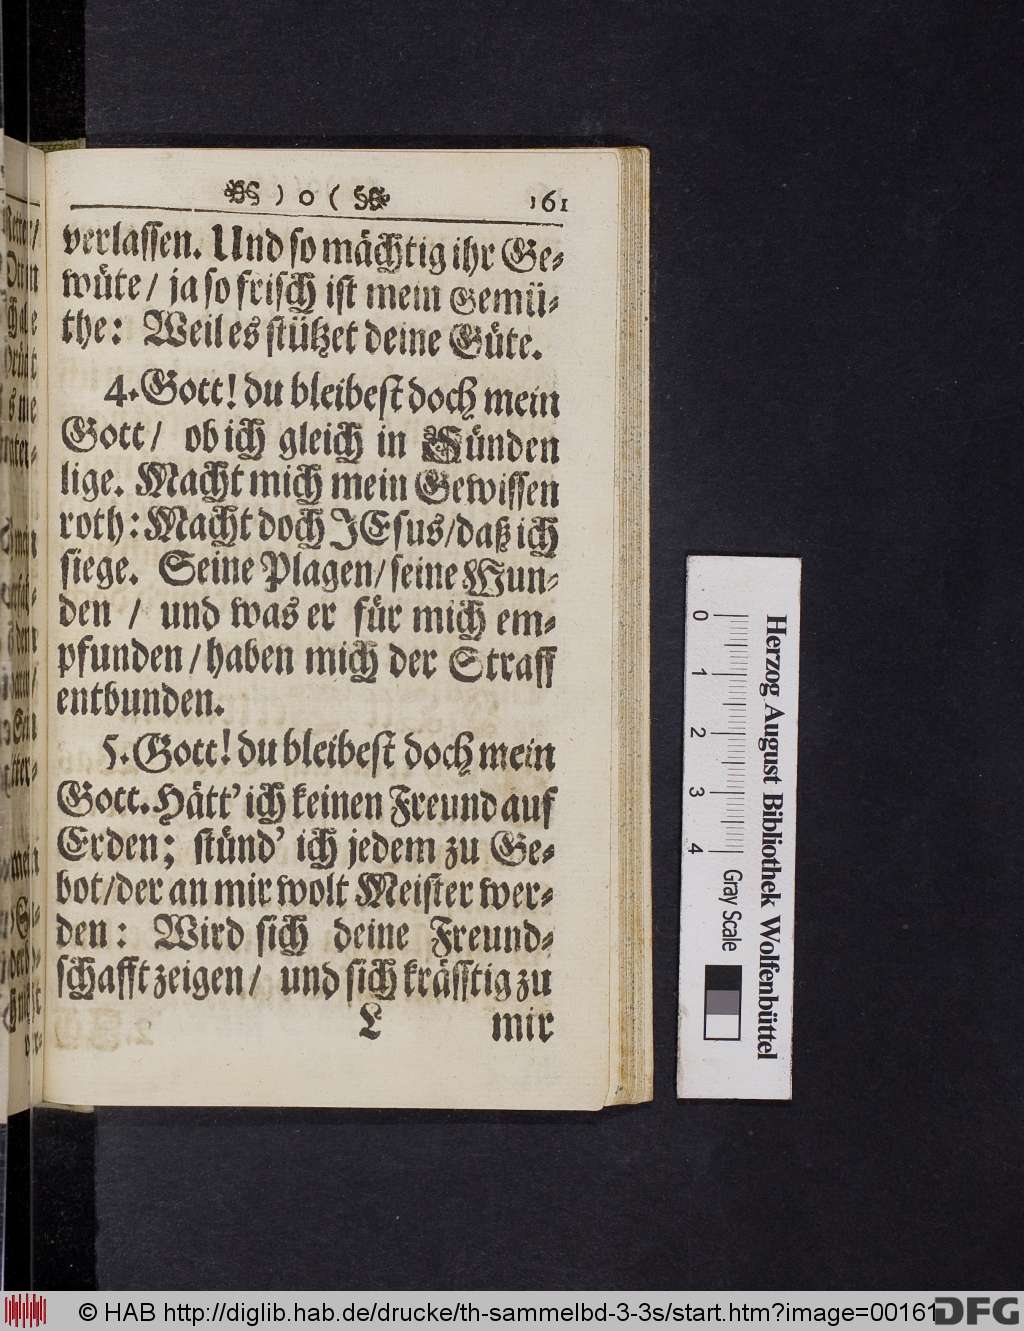 ) o ( 161
verlassen. Und so mächtig ihr Ge-
wüte/ ja so frisch ist mein Gemü-
the: Weil es stützet deine Güte.
4. Gott! du bleibest doch mein
Gott/ ob ich gleich in Sünden
lige. Macht mich mein Gewissen
roth: Macht doch JEsus/daß ich
siege. Seine Plagen/seine Wun-
den / und was er für mich em-
pfunden/haben mich der Straff
entbunden.
5. Gott! du bleibest doch mein
Gott. Hätt' ich keinen Freund auf
Erden; stünd' ich jedem zu Ge-
bot/der an mir wolt Meister wer-
den: Wird sich deine Freund-
schafft zeigen/ und sich kräfftig zu
L mir
0 1 2 3 4 Gray Scale
Herzog August Bibliothek Wolfenbüttel
© HAB http://diglib.hab.de/drucke/th-sammelbd-3-3s/start.htm?image=00161
DFG